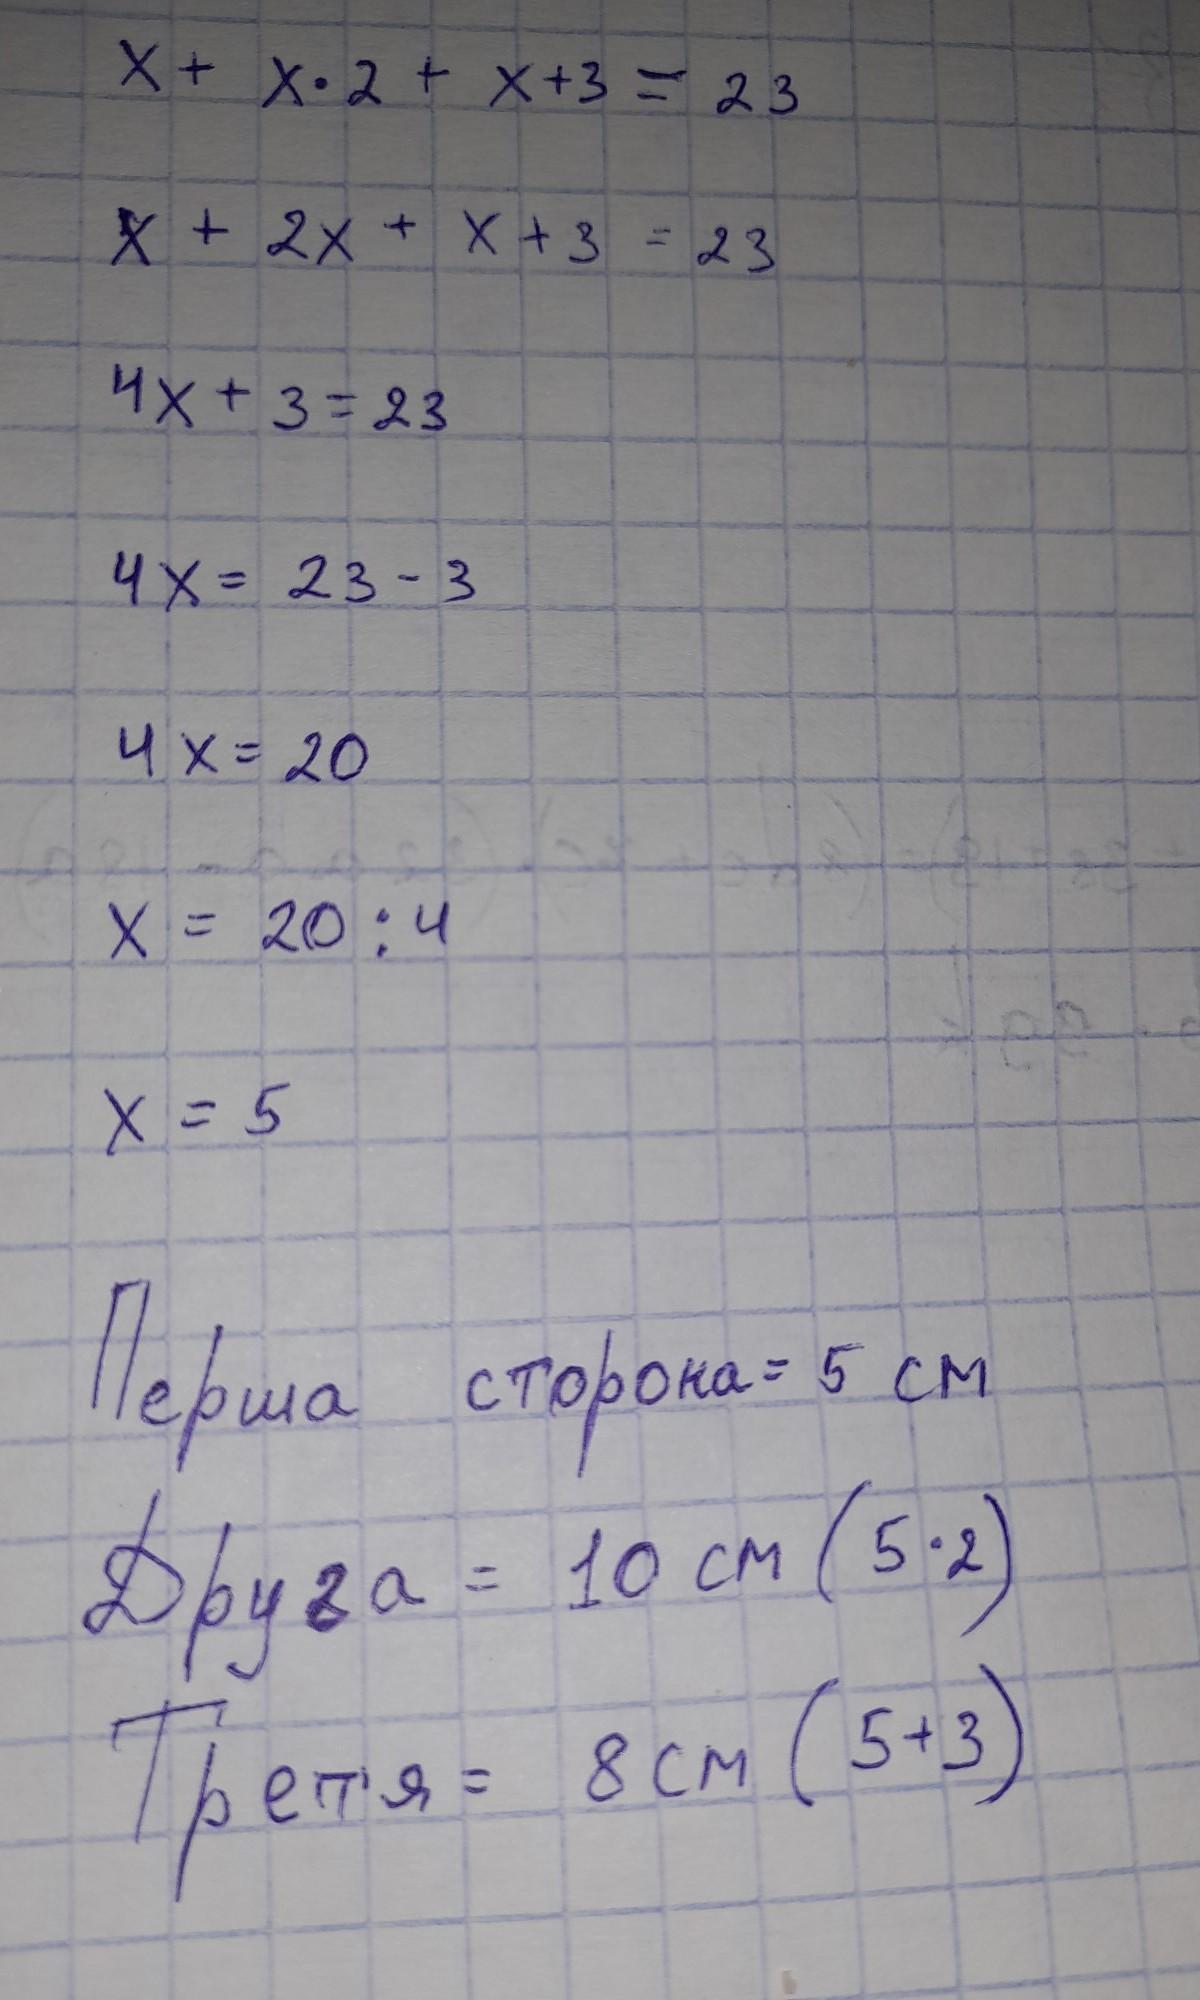 x + x·2 + x+3 = 23
x + 2x + x+3 = 23
4x + 3 = 23
4x = 23 - 3
4x = 20
x = 20 : 4
x = 5
Перша сторона = 5 см
Друга = 10 см (5·2)
Третя = 8 см (5+3)